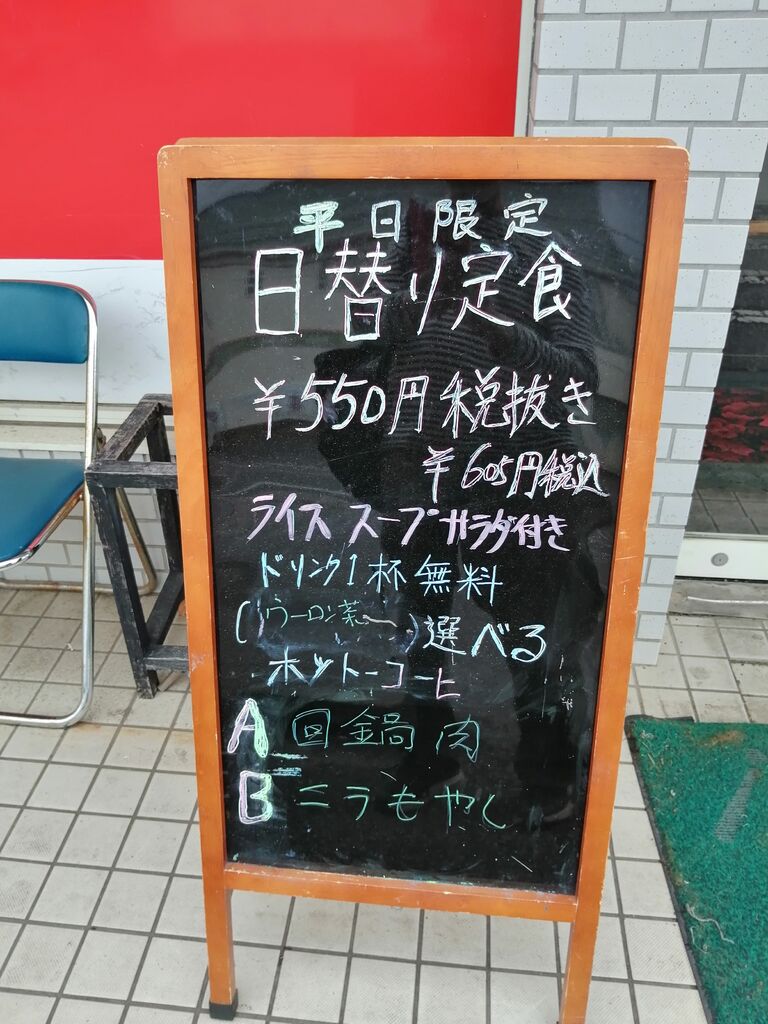 平日限定
日替り定食
¥550円税抜き
¥605円税込
ライス スープ サラダ付き
ドリンク1杯無料
(ウーロン茶 )選べる
ホットーコーヒ
A 回鍋肉
B ニラもやし